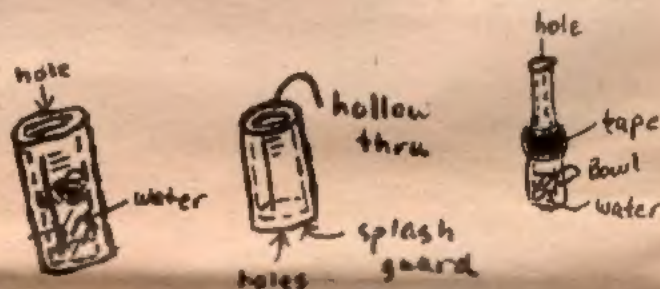 hole
water
hollow
thru
holes
splash
guard
hole
tape
Bowl
water